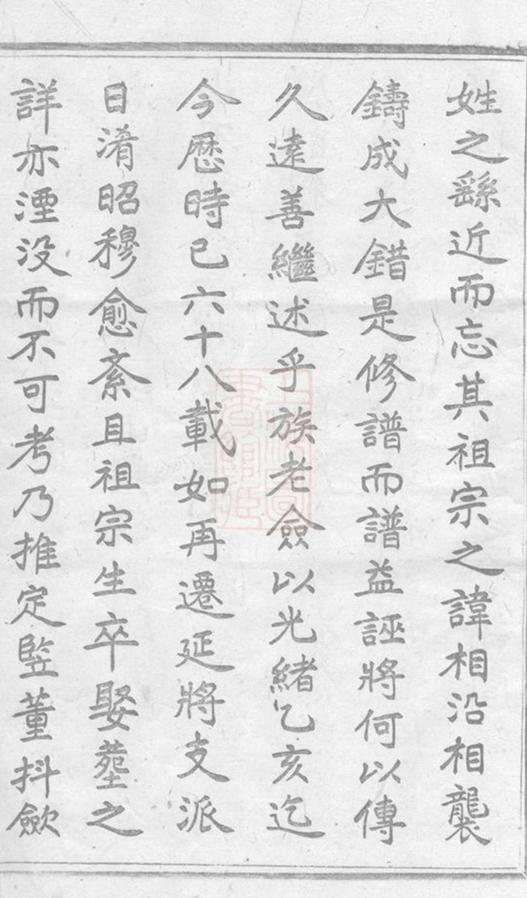 姓之繇近而忘其祖宗之諱相沿相襲
鑄成大錯是修譜而譜益誣將何以傳
久遠善繼述乎族老僉以光緒乙亥迄
今歷時已六十八載如再遷延將支派
日淆昭穆愈紊且祖宗生卒娶塟之
詳亦湮没而不可考乃推定監董抖歛